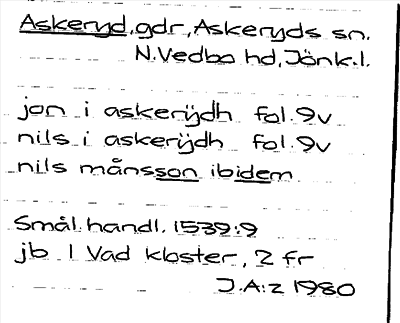 Askeryd, gdr, Askeryds sn.
N. Vedbo hd, Jönk. l.
jon i askerÿdh fol. 9v
nils i askerÿdh fol. 9v
nils månsson ibidem
Smål. handl. 1539:9
jb 1 Vad kloster, 2 fr
J.A:z 1980